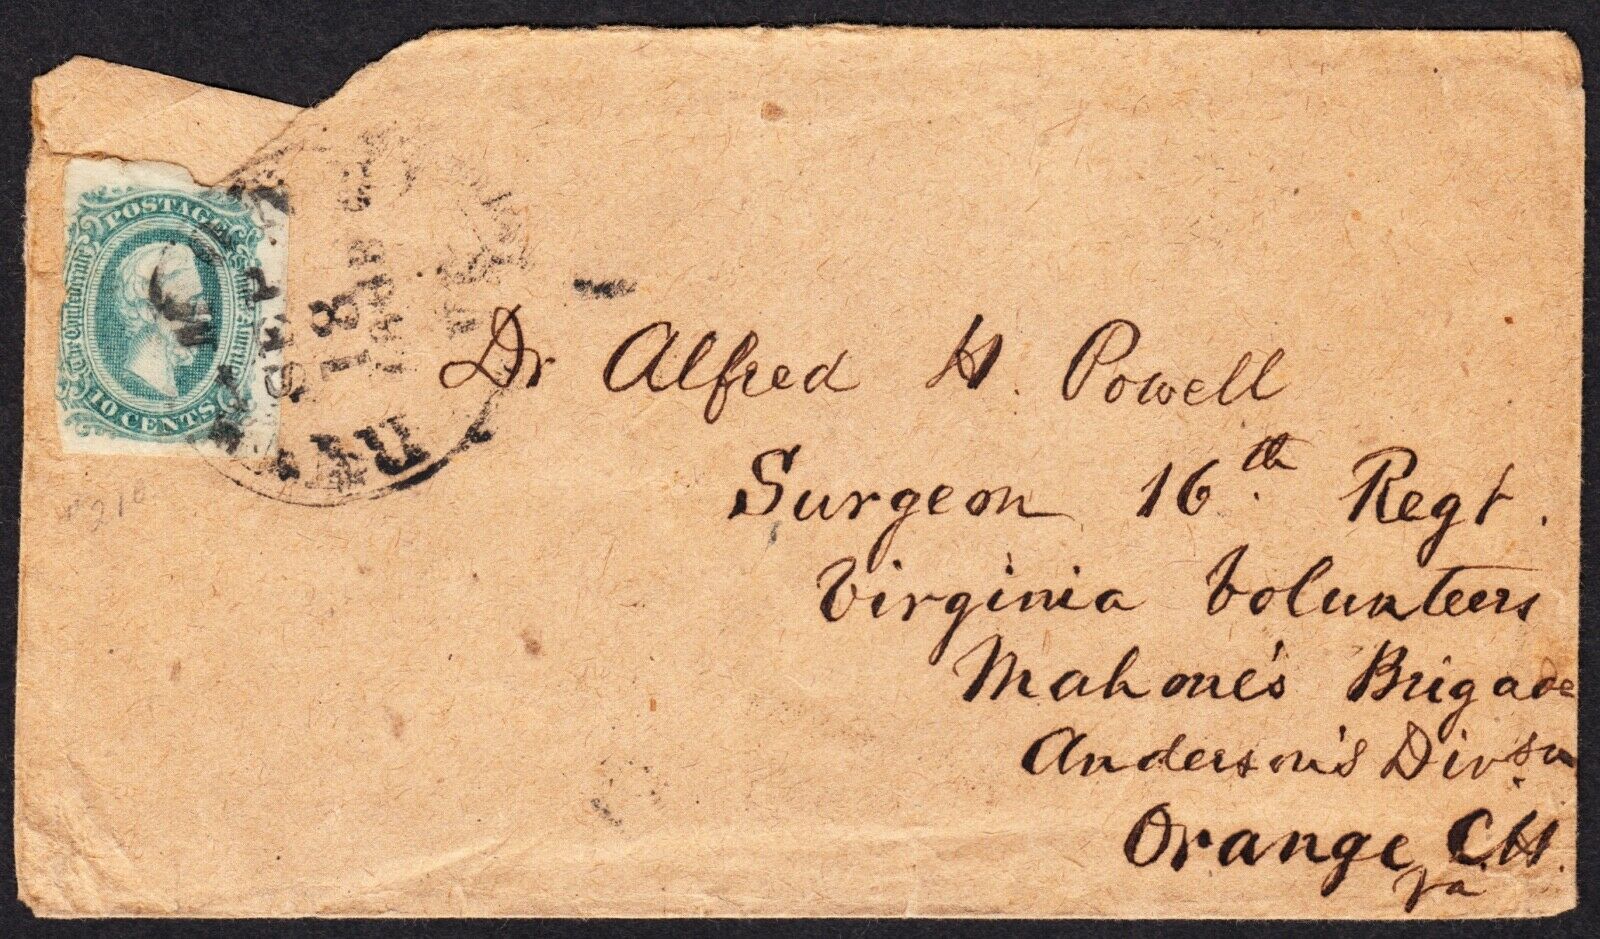 POSTAGE
The Confederate States of America
10 CENTS
SEP
18
Dr Alfred H. Powell
Surgeon 16th Regt.
Virginia Volunteers
Mahone's Brigade
Anderson's Divsn
Orange C.H.
Va